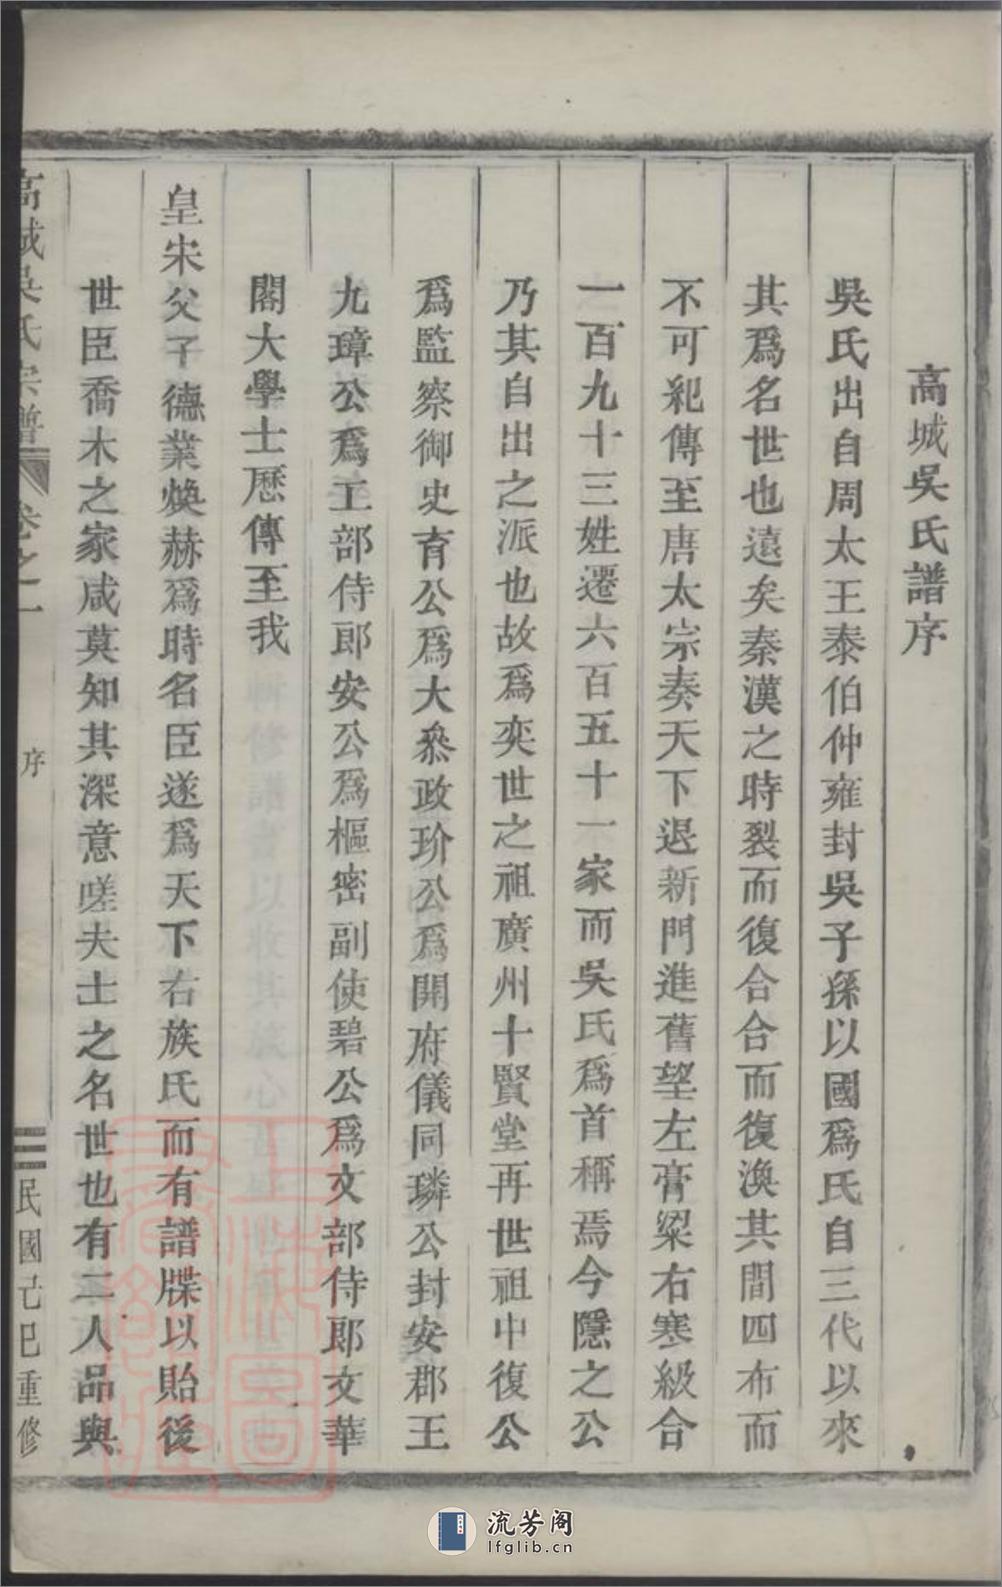 高城吳氏譜序
吳氏出自周太王泰伯仲雍封吳子孫以國爲氏自三代以來
其爲名世也遠矣秦漢之時裂而復合合而復渙其間四布而
不可紀傳至唐太宗奏天下退新門進舊望左膏粱右寒級合
一百九十三姓遷六百五十一家而吳氏爲首稱焉今隱之公
乃其自出之派也故爲奕世之祖廣州十賢堂再世祖中復公
爲監察御史育公爲大叅政玠公爲開府儀同璘公封安郡王
九璋公爲工部侍郎安公爲樞密副使碧公爲文部侍郎文華
閣大學士歷傳至我
皇宋父子德業煥赫爲時名臣遂爲天下右族氏而有譜牒以貽後
世臣喬木之家咸莫知其深意嗟夫士之名世也有二人品與
高城吳氏宗譜 卷之一 序 民國己巳重修
流芳阁
lfglib.cn